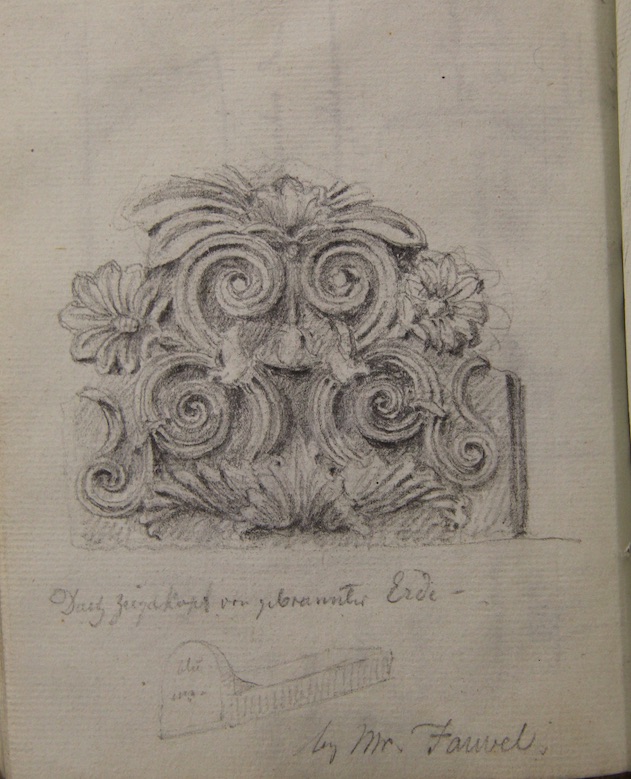 Dach ziegelkopf von gebrannter Erde –
by Mr. Fauvel.